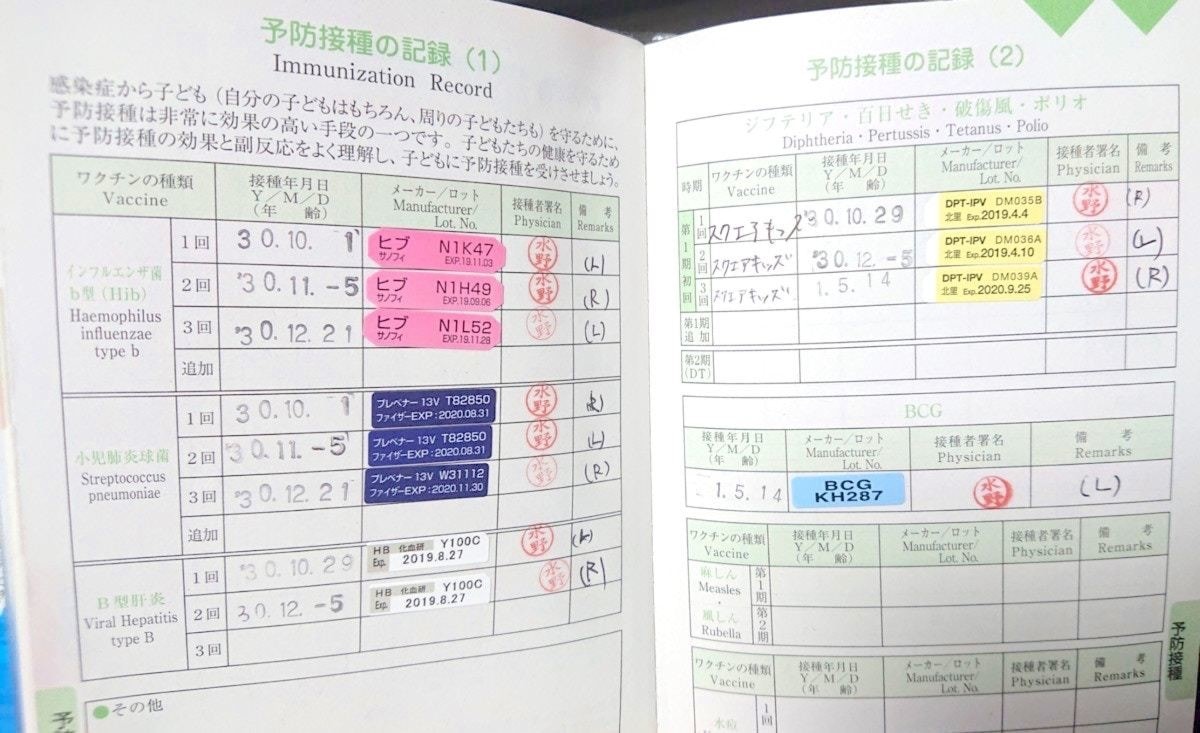 予防接種の記録 (1)
Immunization Record
感染症から子ども (自分の子どもはもちろん、周りの子どもたちも) を守るために、
予防接種は非常に効果の高い手段の一つです。子どもたちの健康を守るため
に予防接種の効果と副反応をよく理解し、子どもに予防接種を受けさせましょう。
ワクチンの種類 接種年月日 メーカー/ロット 接種者署名 備考
Vaccine Y/M/D Manufacturer/ Physician Remarks
(年齢) Lot. No.
インフルエンザ菌
b型 (Hib)
Haemophilus
influenzae
type b
1回 30.10. 1 ヒブ サノフィ N1K47 EXP.19.11.03 水野 (L)
2回 30.11.-5 ヒブ サノフィ N1H49 EXP.19.09.06 水野 (R)
3回 30.12.21 ヒブ サノフィ N1L52 EXP.19.11.28 水野 (L)
追加
小児肺炎球菌
Streptococcus
pneumoniae
1回 30.10. 1 プレベナー 13V T82850 ファイザーEXP:2020.08.31 水野
2回 30.11.-5 プレベナー 13V T82850 ファイザーEXP:2020.08.31 水野 (L)
3回 30.12.21 プレベナー 13V W31112 ファイザーEXP:2020.11.30 水野 (R)
追加
B型肝炎
Viral Hepatitis
type B
1回 30.10.29 HB 化血研 Y100C Exp. 2019.8.27 水野
2回 30.12.-5 HB 化血研 Y100C Exp. 2019.8.27 水野 (R)
3回
●その他
予
予防接種の記録 (2)
ジフテリア・百日せき・破傷風・ポリオ
Diphtheria・Pertussis・Tetanus・Polio
時期 ワクチンの種類 接種年月日 メーカー/ロット 接種者署名 備考
Vaccine Y/M/D Manufacturer/ Physician Remarks
(年齢) Lot. No.
第1期初回
1回 スクエアキッズ 30.10.29 DPT-IPV DM035B 北里 Exp.2019.4.4 水野 (R)
2回 スクエアキッズ 30.12.-5 DPT-IPV DM036A 北里 Exp.2019.4.10 水野 (L)
3回 スクエアキッズ 1.5.14 DPT-IPV DM039A 北里 Exp.2020.9.25 水野 (R)
第1期
追加
第2期
(DT)
BCG
接種年月日 メーカー/ロット 接種者署名 備考
Y/M/D Manufacturer/ Physician Remarks
(年齢) Lot. No.
1.5.14 BCG KH287 水野 (L)
ワクチンの種類 接種年月日 メーカー/ロット 接種者署名 備考
Vaccine Y/M/D Manufacturer/ Physician Remarks
(年齢) Lot. No.
麻しん
Measles
・
風しん
Rubella
第1期
第2期
ワクチンの種類 接種年月日 メーカー/ロット 接種者署名 備考
Vaccine Y/M/D Manufacturer/ Physician Remarks
(年齢) Lot. No.
水痘
1回
予防接種